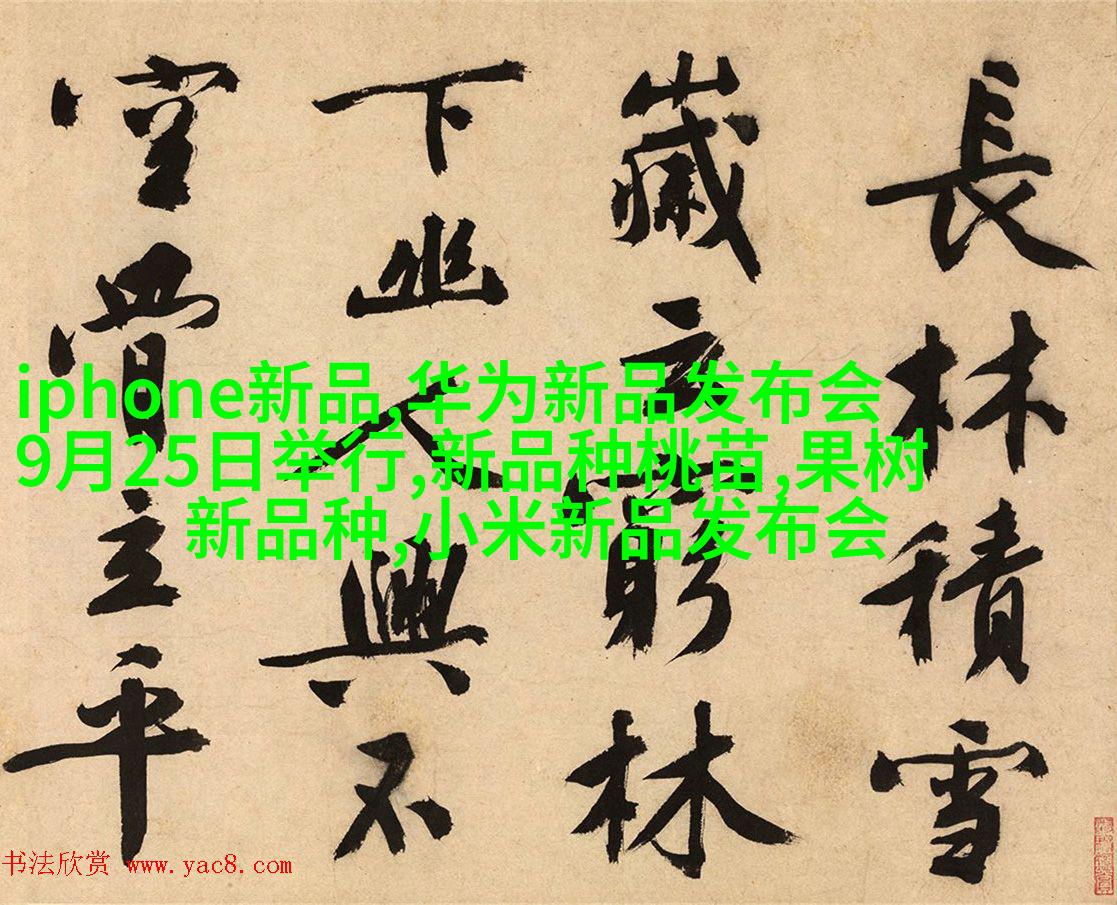 長林積雪
歲云窮林
下幽人興不
空骨立平
iphone新品,华为新品发布会
9月25日举行,新品种桃苗,果树
新品种,小米新品发布会
书法欣赏 www.yac8.com